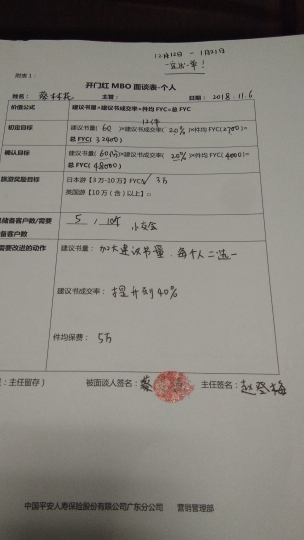 12月12日 - 1月21日
附表1：
开门红MBO面谈表-个人
姓名： 主管： 日期：2018.11.6
价值公式 建议书量×建议书成交率×件均FYC=总FYC
12件
初定目标 建议书量( 60 )×建议书成交率( 20% )×件均FYC(2700)=
总FYC( 32400 )
确认目标 建议书量( 60份 )×建议书成交率( 20% )×件均FYC( 4000 )=
总FYC( 48000 )
旅游奖励目标 日本游【3万-10万】FYC√ 3万
英国游【10万（含）以上】□
储备客户数/需要 5 /
备客户数
需要改进的动作 建议书量： 加大建议书量，每个人二选一
建议书成交率： 提升到40%
件均保费： 5万
：主任留存） 被面谈人签名：蔡 主任签名：赵登梅
中国平安人寿保险股份有限公司广东分公司 营销管理部